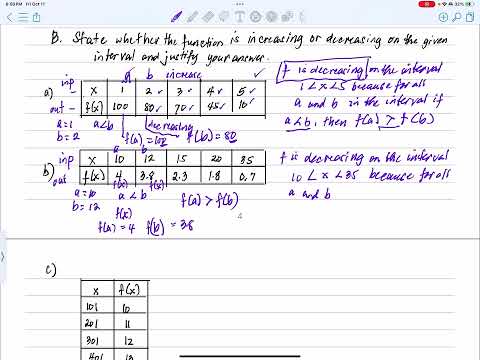 8:50 PM Fri Oct 11
32%
B. State whether the function is increasing or decreasing on the given
interval and justify your answer.
a b increase
a) inp x 1 2 3 4 5
out f(x) 100 80 70 45 10
a=1 a<b decreasing
b=2 f(a)=100 f(b)=80
f is decreasing on the interval
1<x<5 because for all
a and b in the interval if
a<b, then f(a)>f(b)
a b
b) inp x 10 12 15 20 35
out f(x) 4 3.8 2.3 1.8 0.7
a=10 f(x) f(x)
b=12 a<b f(a)>f(b)
f(x)
f(a)=4 f(b)=3.8
f is decreasing on the interval
10<x<35 because for all
a and b
c)
x f(x)
101 10
201 11
301 12
401 13